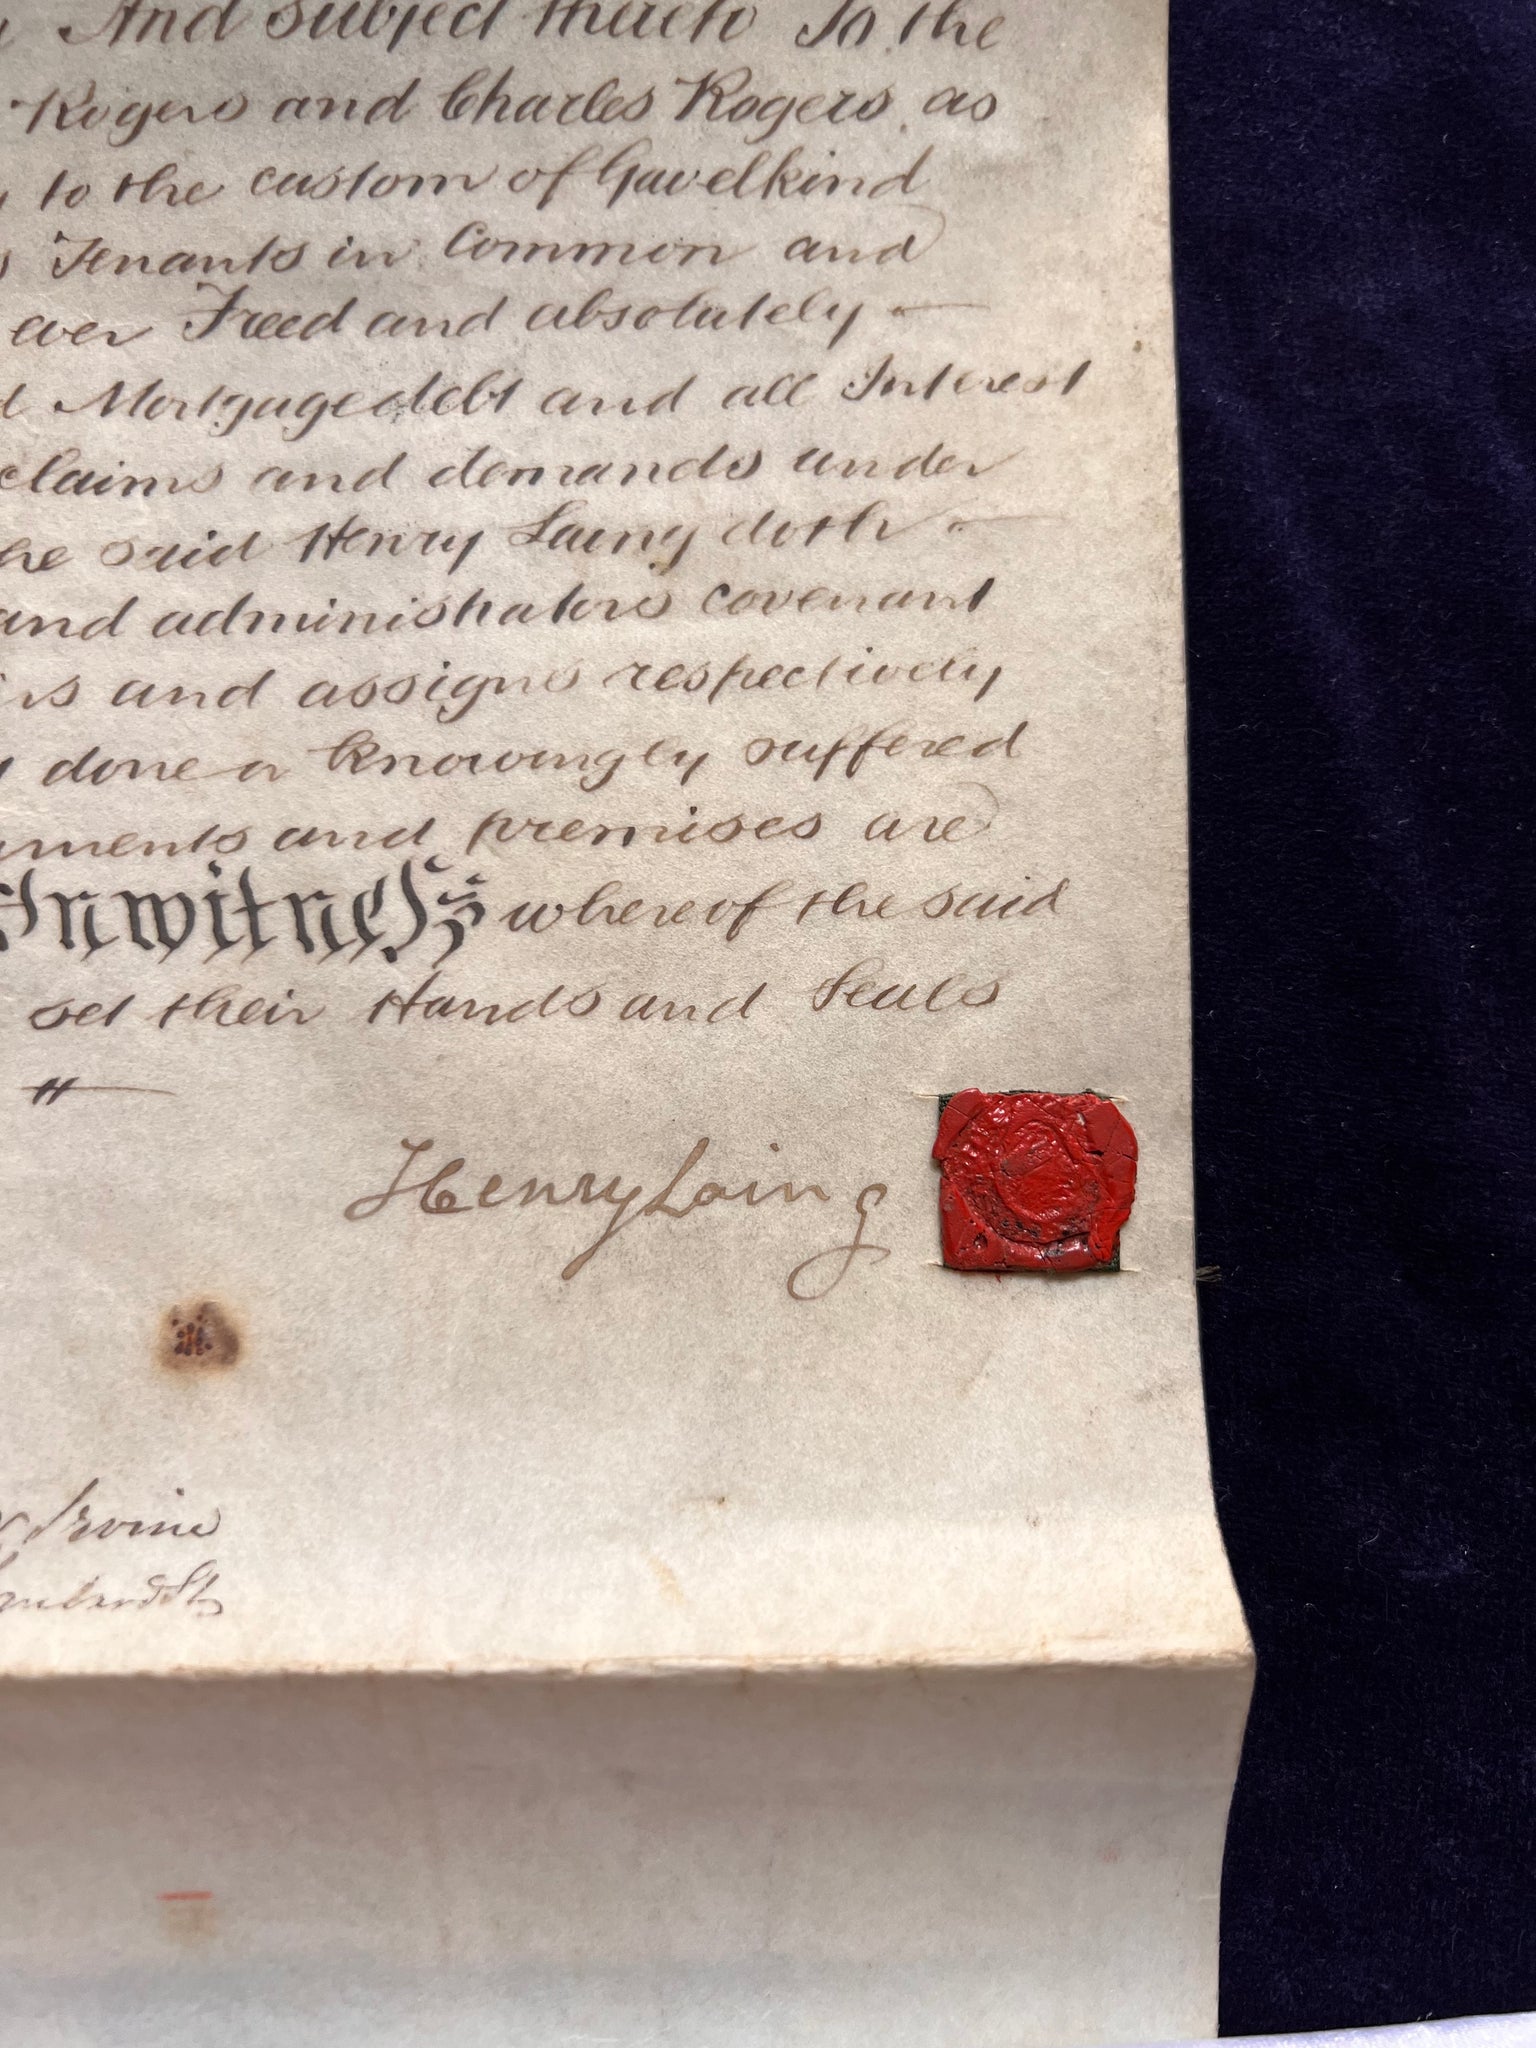 And subject thereto To the
Rogers and Charles Rogers as
to the custom of Gavelkind
Tenants in Common and
ever Freed and absolutely
Mortgage debt and all Interest
claims and demands under
he said Henry Laing doth
and administrators covenant
irs and assigns respectively
done or knowingly suffered
ments and premises are
In witness whereof the said
set their Hands and Seals
Henry Laing
Irvine